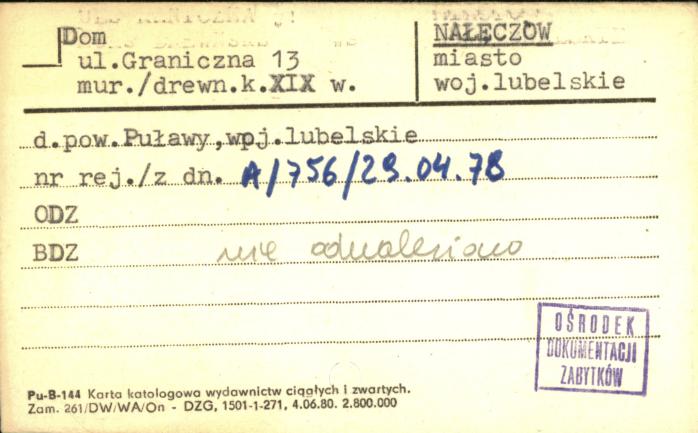 Dom
ul.Graniczna 13
mur./drewn.k.XIX w.
NAŁĘCZÓW
miasto
woj.lubelskie
d.pow.Puławy,wpj.lubelskie
nr rej./z dn. A/756/29.04.78
ODZ
BDZ nie odnaleziono
OŚRODEK
DOKUMENTACJI
ZABYTKÓW
Pu-B-144 Karta katologowa wydawnictw ciągłych i zwartych.
Zam. 261/DW/WA/On - DZG, 1501-1-271, 4.06.80. 2.800.000